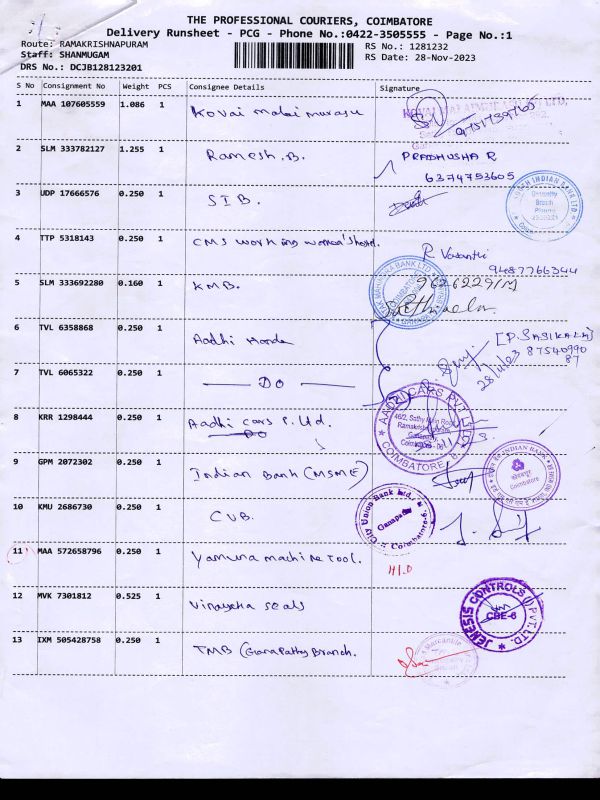 THE PROFESSIONAL COURIERS, COIMBATORE
Delivery Runsheet - PCG - Phone No.:0422-3505555 - Page No.:1
Route: RAMAKRISHNAPURAM RS No.: 1281232
Staff: SHANMUGAM RS Date: 28-Nov-2023
DRS No.: DCJB128123201
S No Consignment No Weight PCS Consignee Details Signature
1 MAA 107605559 1.086 1 Kovai malai murasu
2 SLM 333782127 1.255 1 Ramesh. B. PRADHUSHA R
6374753605
3 UDP 17666576 0.250 1 SIB.
4 TTP 5318143 0.250 1 CMS working women's hostel. R Vasanthi
9487766344
5 SLM 333692280 0.160 1 KMB.
6 TVL 6358868 0.250 1 Aadhi Honda [P. SASIKALA]
87540990
87
28/11/23
7 TVL 6065322 0.250 1 DO
8 KRR 1298444 0.250 1 Aadhi cars P. Ltd.
AADHI CARS PVT LTD
46/2, Sathy Main Road,
COIMBATORE
9 GPM 2072302 0.250 1 Indian Bank (MSME)
Coimbatore
10 KMU 2686730 0.250 1 CUB.
City Union Bank Ltd.,
Ganapathy
Coimbatore
11 MAA 572658796 0.250 1 Yamuna machine tool. H.O
12 MVK 7301812 0.525 1 Vinayaka seals
JENESIS CONTROLS (I) PVT. LTD.
CBE-6
13 IXM 505428758 0.250 1 TMB (Ganapathy Branch.